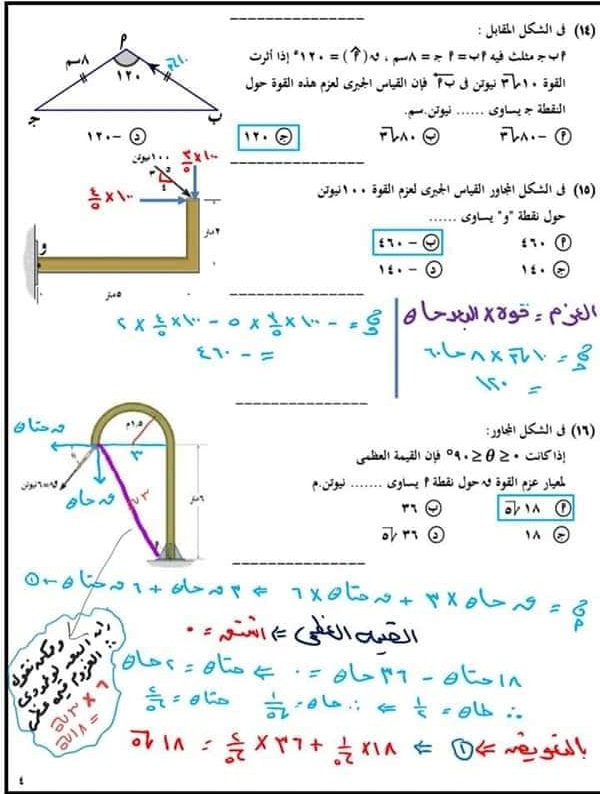 (١٤) فى الشكل المقابل :
٢ ب جـ مثلث فيه ٢ ب = ٢ جـ = ٨سم ، ق(٢) = ١٢٠° إذا أثرت
القوة ١٠√٣ نيوتن فى ب٢ فإن القياس الجبرى لعزم هذه القوة حول
النقطة جـ يساوى ...... نيوتن.سم.
٢ -٨٠√٣ ب ٨٠√٣ جـ ١٢٠ د -١٢٠
٢
٨سم
١٢٠
١٠√٣
جـ
ب
(١٥) فى الشكل المجاور القياس الجبرى لعزم القوة ١٠٠نيوتن
حول نقطة "و" يساوى ......
٢ ٤٦٠ ب -٤٦٠
جـ ١٤٠ د -١٤٠
١٠٠نيوتن
١٠٠×٣/٥
١٠٠×٤/٥
٣
٤
و
٢متر
٥متر
العزم = قوة × البعد حا θ
ج = ١٠√٣ × ٨ حا ٦٠
= ١٢٠
ج و = -١٠٠×٣/٥×٥ - ١٠٠×٤/٥×٢
= -٤٦٠
(١٦) فى الشكل المجاور:
إذا كانت ٠ ≤ θ ≤ ٩٠° فإن القيمة العظمى
لمعيار عزم القوة ق حول نقطة ٢ يساوى ....... نيوتن.م
٢ ١٨√٥ ب ٣٦
جـ ١٨ د ٣٦√٥
ق حتا θ
١,٥م
٣
ق=٦نيوتن
ق حا θ
٣√٥
٦متر
٢
ج٢ = ق حا θ × ٣ + ق حتا θ × ٦ ⇐ ٣ ق حا θ + ٦ ق حتا θ ← ①
القيمة العظمى ⇐ اشتق = ٠
١٨ حتا θ - ٣٦ حا θ = ٠ ⇐ حتا θ = ٢ حا θ
∴ طا θ = ١/٢ ⇐ ∴ حا θ = ١/√٥ حتا θ = ٢/√٥
بالتعويض ⇐ ① ⇐ ١٨×١/√٥ + ٣٦×٢/√٥ = ١٨√٥
وممكن نقول
العزم قيمة عظمى
٦ × ٣√٥
= ١٨√٥
٤